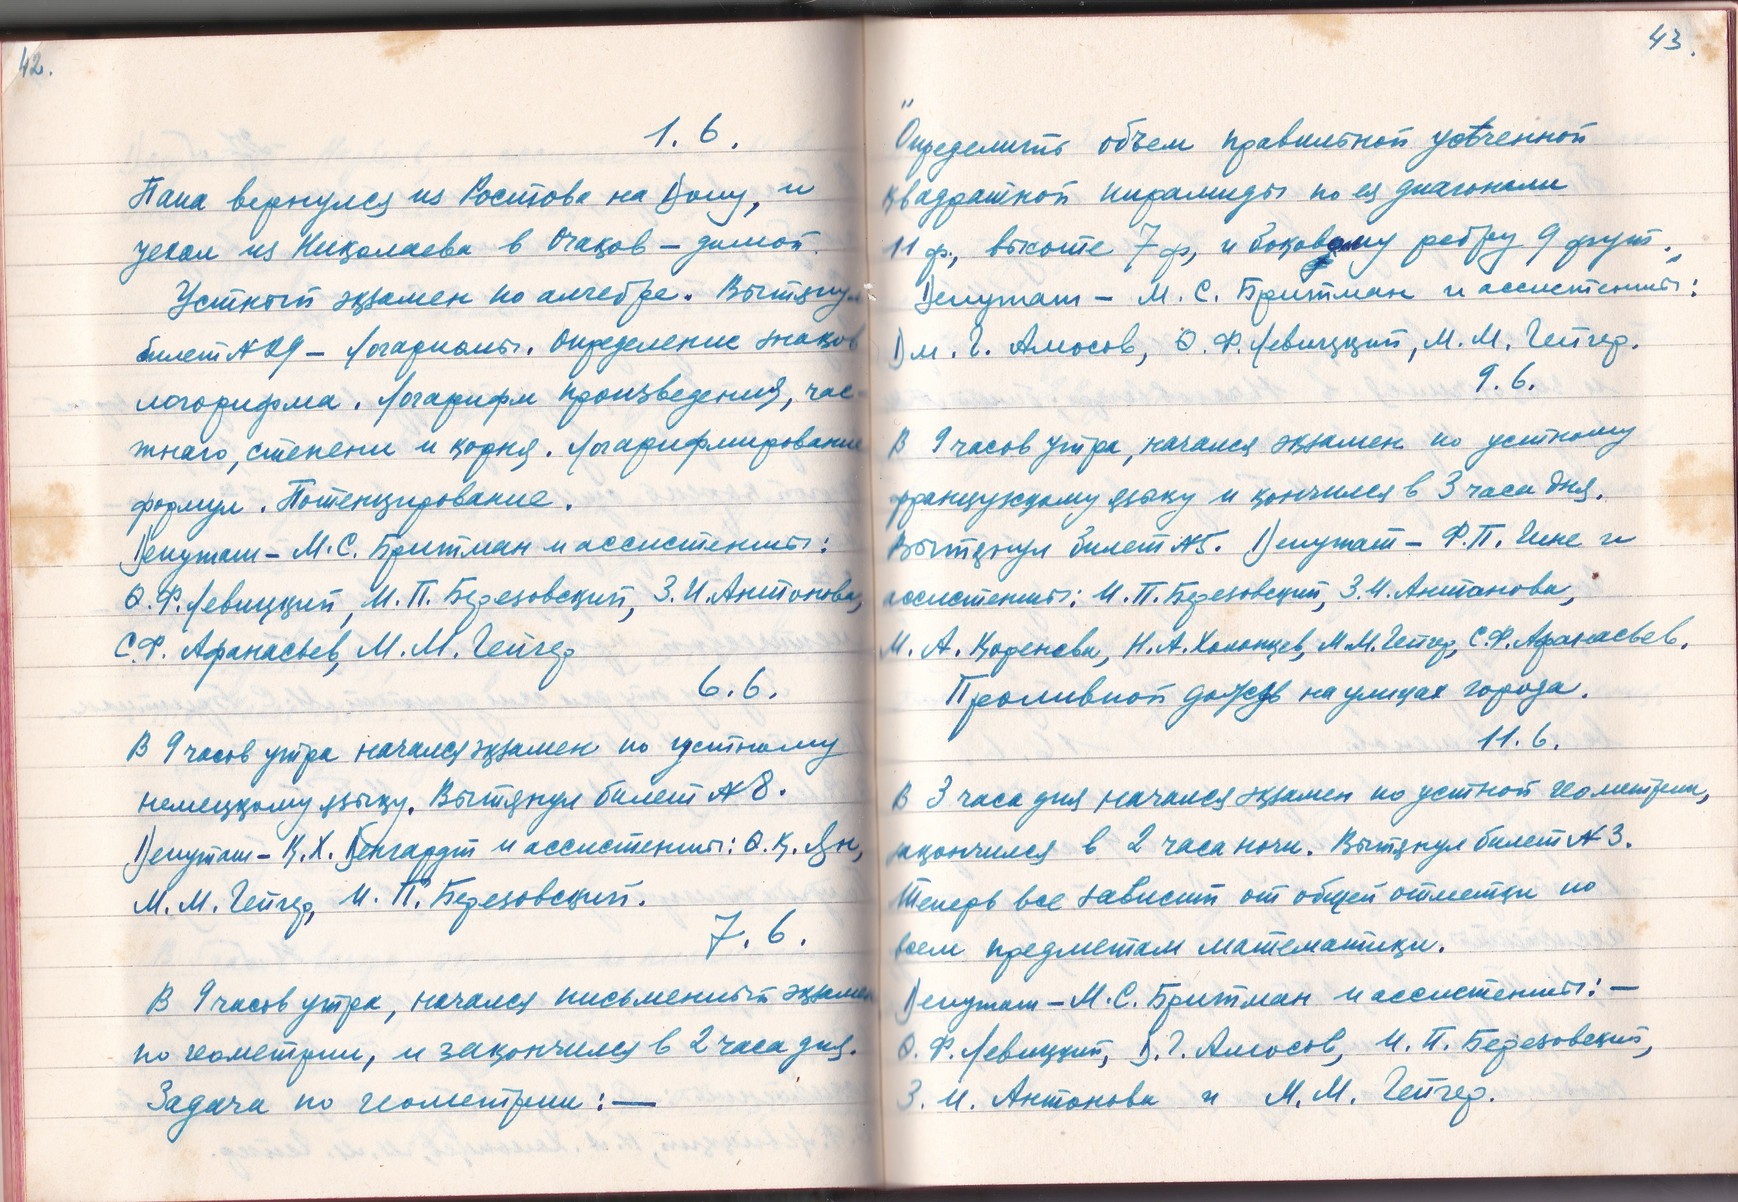 42.
1. 6.
Папа вернулся из Ростова на Дону, и
уехал из Николаева в Очаков – домой.
Устный экзамен по алгебре. Вытянул
билет №29 – Логарифмы. Определение знаков
логорифма. Логарифм произведения, час-
тнаго, степени и корня. Логарифмирование
формул. Потенцирование.
Депутат – М. С. Бритман и ассистенты:
Ф. Левицкий, И. П. Березовский, З. И. Антонова,
С. Ф. Афанасьев, М. М. Гейгер
6. 6.
В 9 часов утра начался экзамен по устному
немецкому языку. Вытянул билет №8.
Депутат – К. Х. Венгардт и ассистенты: О. К. Ян,
М. М. Гейгер, И. П. Березовский.
7. 6.
В 9 часов утра, начался письменный экзамен
по геометрии, и закончился в 2 часа дня.
Задача по геометрии: —
43.
"Определить объем правильной усеченной
квадратной пирамиды по ея диагонали
11 ф., высоте 7 ф, и боковому ребру 9 фут.,
Депутат – М. С. Бритман и ассистенты:
Дм. Г. Амосов, О. Ф. Левицкий, М. М. Гейгер.
9. 6.
В 9 часов утра, начался экзамен по устному
французскому языку и кончился в 3 часа дня.
Вытянул билет №5. Депутат – Ф. П. Гине и
ассистенты: И. П. Березовский, З. И. Антонова,
М. А. Коренева, Н. А. Холонцев, М. М. Гейгер, С. Ф. Афанасьев.
Проливной дождь на улицах города.
11. 6.
В 3 часа дня начался экзамен по устной геометрии,
закончился в 2 часа ночи. Вытянул билет №3.
Теперь все зависит от общей отметки по
всем предметам математики.
Депутат – М. С. Бритман и ассистенты: –
О. Ф. Левицкий, Д. Г. Амосов, И. П. Березовский,
З. И. Антонова и М. М. Гейгер.